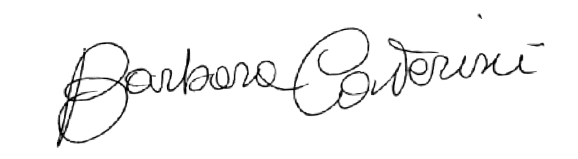 Barbara Conterini